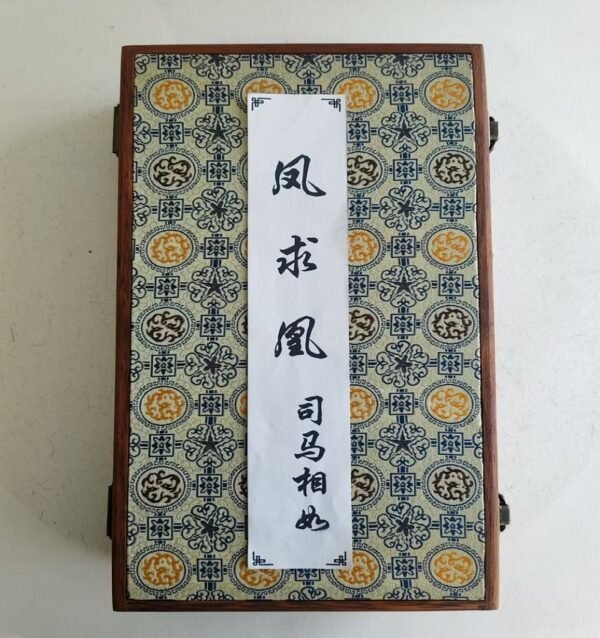 凤求凰
司马相如